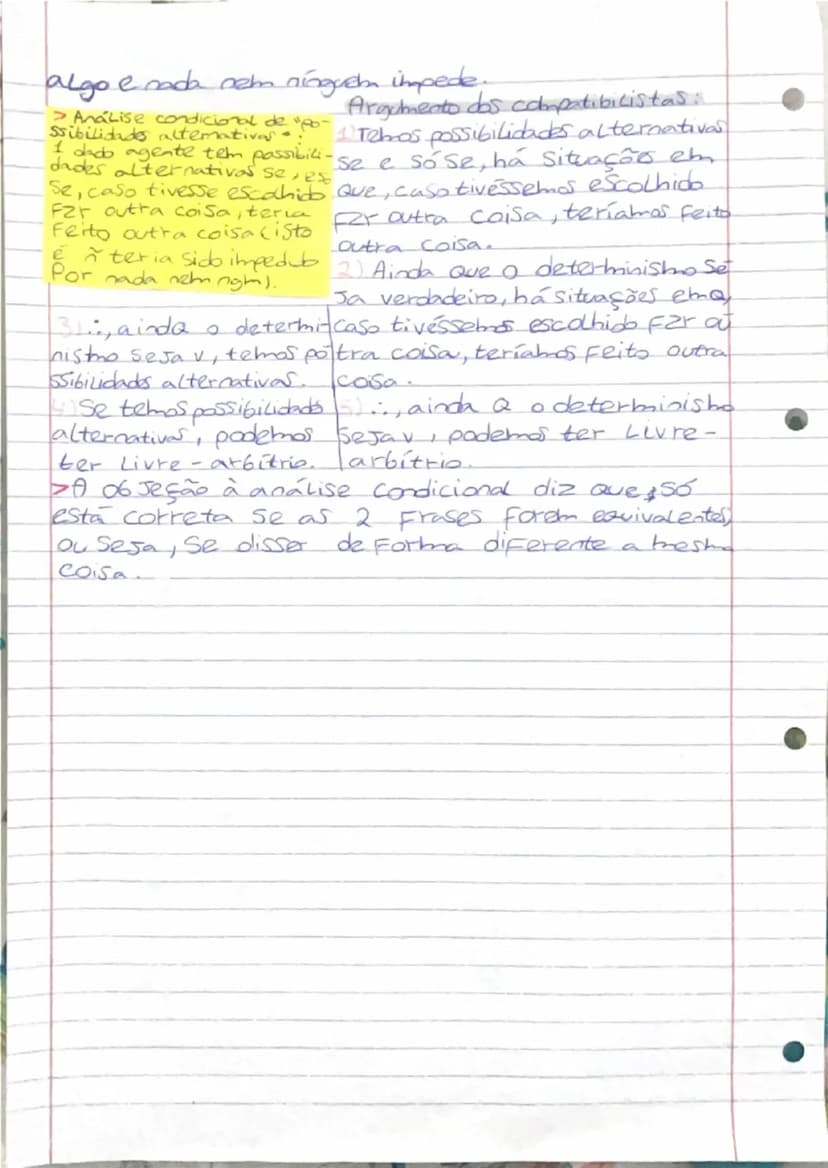 algo e nada nem ninguém impede.
> Análise condicional de "po-
ssibilidades alternativas":
1 dado agente tem possibili-
dades alternativas se, e só
se, caso tivesse escolhido
fzr outra coisa, teria
feito outra coisa (isto
é ñ teria sido impedido
por nada nem ngm).
Argumento dos compatibilistas:
1) Temos possibilidades alternativas
se e só se, há situações em
que, caso tivéssemos escolhido
fzr outra coisa, teríamos feito
outra coisa.
2) Ainda que o determinismo se
ja verdadeiro, há situações em q,
caso tivéssemos escolhido fzr ou
tra coisa, teríamos feito outra
coisa.
3) ∴, ainda q o determi-
nismo seja v, temos po
ssibilidades alternativas.
4) Se temos possibilidads
alternativas, podemos
ter livre-arbítrio.
5) ∴, ainda q o determinismo
seja v, podemos ter livre-
arbítrio.
> A objeção à análise condicional diz que, só
está correta se as 2 frases forem equivalentes,
ou seja, se disser de forma diferente a mesma
coisa.